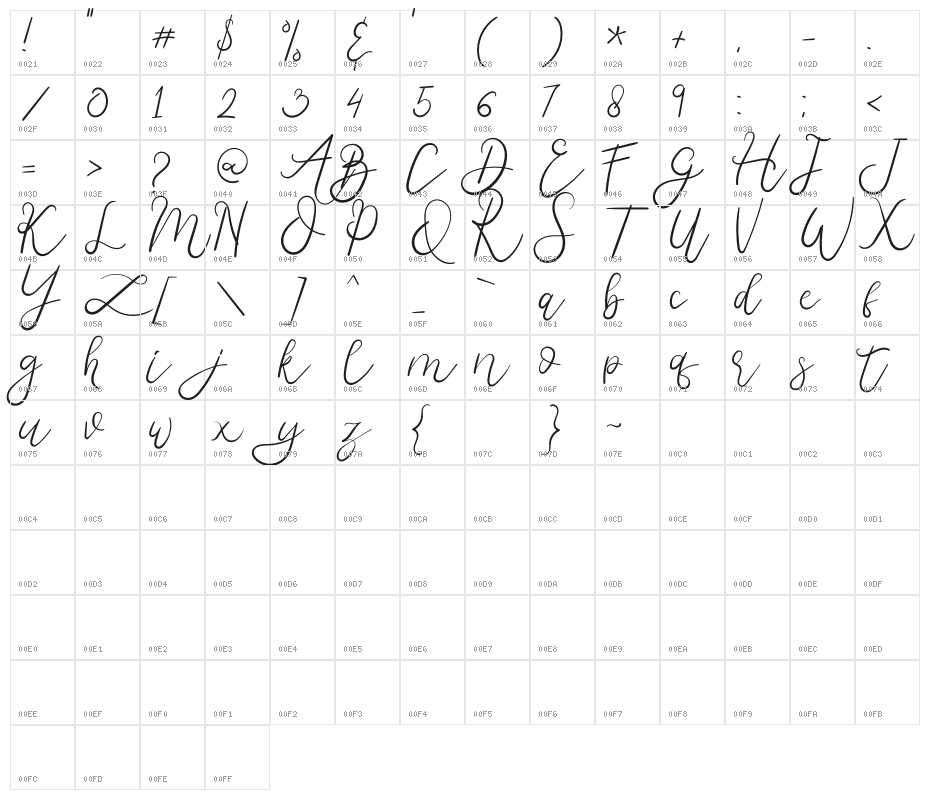 ! " # $ % & ' ( ) * + , - .
0021 0022 0023 0024 0025 0026 0027 0028 0029 002A 002B 002C 002D 002E
/ 0 1 2 3 4 5 6 7 8 9 : ; <
002F 0030 0031 0032 0033 0034 0035 0036 0037 0038 0039 003A 003B 003C
= > ? @ A B C D E F G H I J
003D 003E 003F 0040 0041 0042 0043 0044 0045 0046 0047 0048 0049 004A
K L M N O P Q R S T U V W X
004B 004C 004D 004E 004F 0050 0051 0052 0053 0054 0055 0056 0057 0058
Y Z [ \ ] ^ _ ` a b c d e f
0059 005A 005B 005C 005D 005E 005F 0060 0061 0062 0063 0064 0065 0066
g h i j k l m n o p q r s t
0067 0068 0069 006A 006B 006C 006D 006E 006F 0070 0071 0072 0073 0074
u v w x y z { } ~
0075 0076 0077 0078 0079 007A 007B 007C 007D 007E 00C0 00C1 00C2 00C3
00C4 00C5 00C6 00C7 00C8 00C9 00CA 00CB 00CC 00CD 00CE 00CF 00D0 00D1
00D2 00D3 00D4 00D5 00D6 00D7 00D8 00D9 00DA 00DB 00DC 00DD 00DE 00DF
00E0 00E1 00E2 00E3 00E4 00E5 00E6 00E7 00E8 00E9 00EA 00EB 00EC 00ED
00EE 00EF 00F0 00F1 00F2 00F3 00F4 00F5 00F6 00F7 00F8 00F9 00FA 00FB
00FC 00FD 00FE 00FF